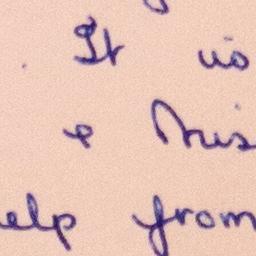 It is
e this
elp from